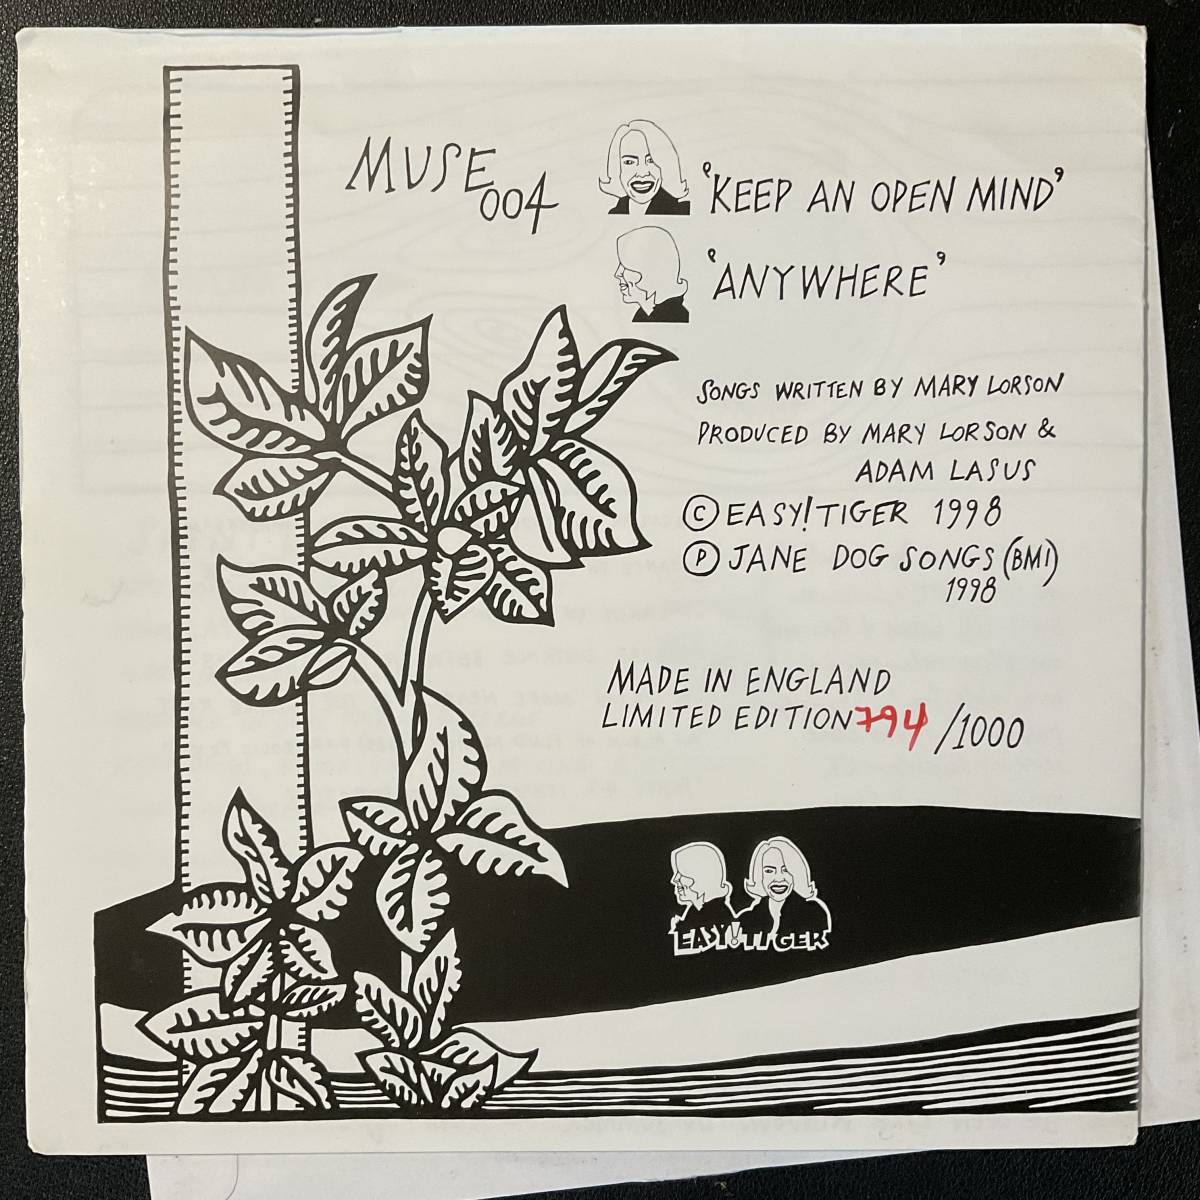 MUSE
004
'KEEP AN OPEN MIND'
'ANYWHERE'
SONGS WRITTEN BY MARY LORSON
PRODUCED BY MARY LORSON &
ADAM LASUS
© EASY!TIGER 1998
℗ JANE DOG SONGS (BMI)
1998
MADE IN ENGLAND
LIMITED EDITION 794 /1000
EASY!TIGER